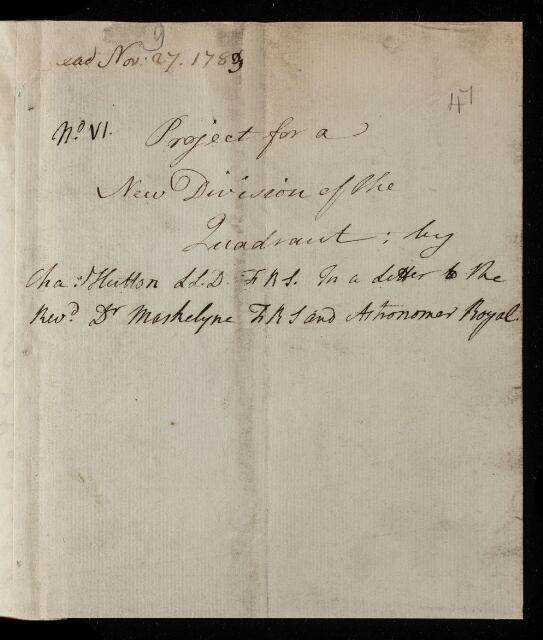 9
ead Nov: 27. 1783
47
No VI. Project for a
New Division of the
Quadrant; by
Cha:s Hutton LL.D. F R S. In a Letter to the
Revd. Dr Maskelyne F R S and Astronomer Royal.